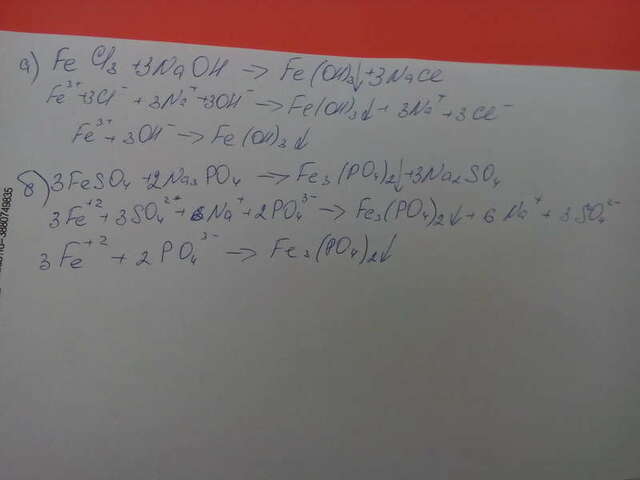 а) FeCl₃ + 3NaOH → Fe(OH)₃↓ + 3NaCl
Fe³⁺ + 3Cl⁻ + 3Na⁺ + 3OH⁻ → Fe(OH)₃↓ + 3Na⁺ + 3Cl⁻
Fe³⁺ + 3OH⁻ → Fe(OH)₃↓
б) 3FeSO₄ + 2Na₃PO₄ → Fe₃(PO₄)₂↓ + 3Na₂SO₄
3Fe⁺² + 3SO₄²⁻ + 6Na⁺ + 2PO₄³⁻ → Fe₃(PO₄)₂↓ + 6Na⁺ + 3SO₄²⁻
3Fe⁺² + 2PO₄³⁻ → Fe₃(PO₄)₂↓